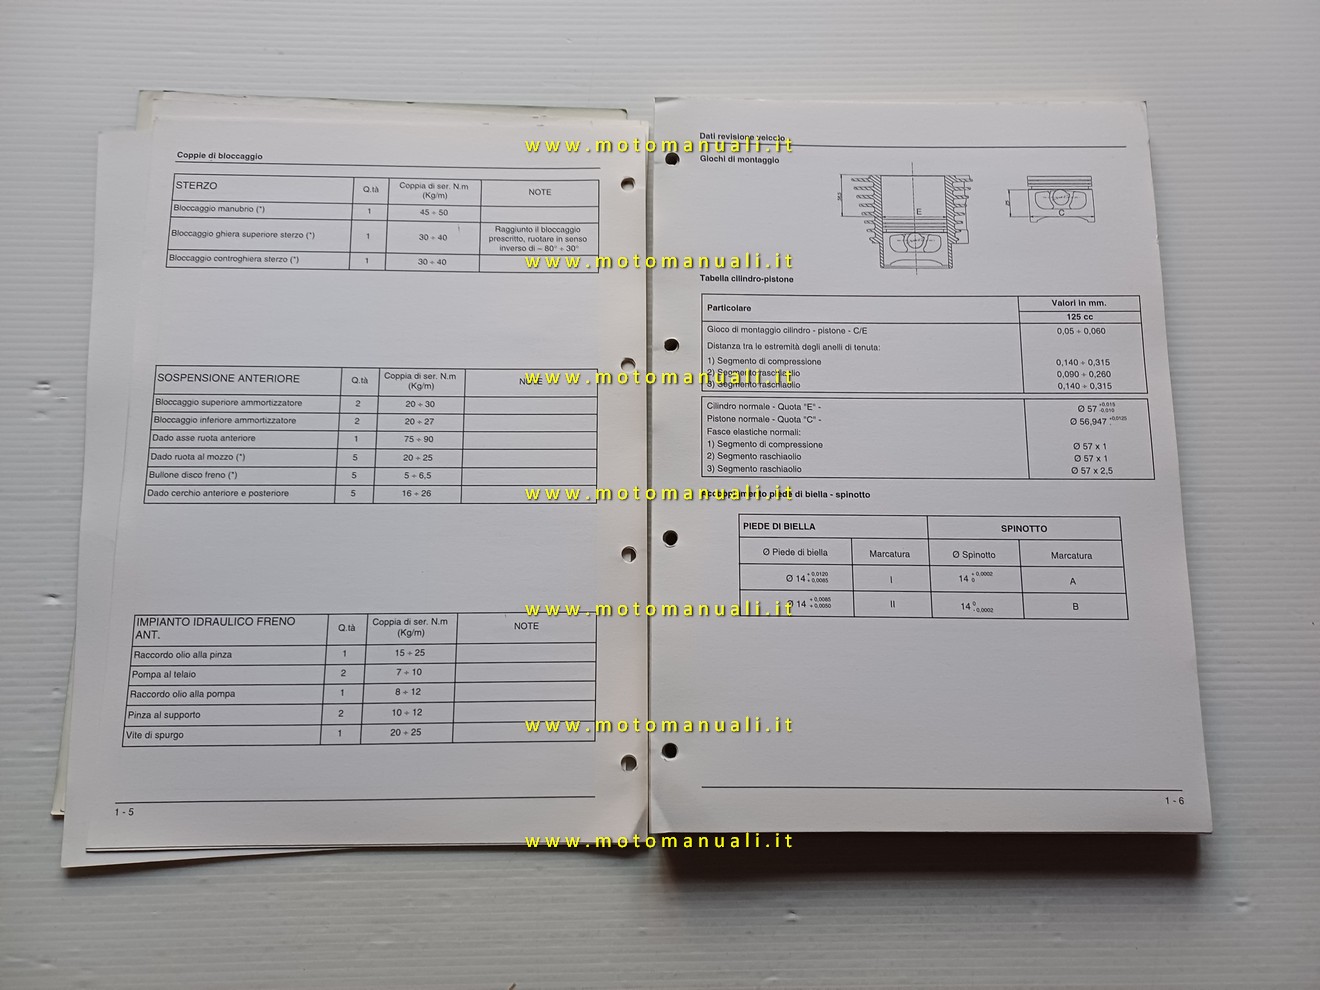 Coppie di bloccaggio
STERZO Q.tà Coppia di ser. N.m (Kg/m) NOTE
Bloccaggio manubrio (*) 1 45 ÷ 50
Bloccaggio ghiera superiore sterzo (*) 1 30 ÷ 40 Raggiunto il bloccaggio prescritto, ruotare in senso inverso di ~ 80° ÷ 30°
Bloccaggio controghiera sterzo (*) 1 30 ÷ 40
SOSPENSIONE ANTERIORE Q.tà Coppia di ser. N.m (Kg/m) NOTE
Bloccaggio superiore ammortizzatore 2 20 ÷ 30
Bloccaggio inferiore ammortizzatore 2 20 ÷ 27
Dado asse ruota anteriore 1 75 ÷ 90
Dado ruota al mozzo (*) 5 20 ÷ 25
Bullone disco freno (*) 5 5 ÷ 6,5
Dado cerchio anteriore e posteriore 5 16 ÷ 26
IMPIANTO IDRAULICO FRENO ANT. Q.tà Coppia di ser. N.m (Kg/m) NOTE
Raccordo olio alla pinza 1 15 ÷ 25
Pompa al telaio 2 7 ÷ 10
Raccordo olio alla pompa 1 8 ÷ 12
Pinza al supporto 2 10 ÷ 12
Vite di spurgo 1 20 ÷ 25
1 - 5
Dati revisione veicolo
Giochi di montaggio
E
C
25
Tabella cilindro-pistone
Particolare Valori in mm.
125 cc
Gioco di montaggio cilindro - pistone - C/E 0,05 ÷ 0,060
Distanza tra le estremità degli anelli di tenuta:
1) Segmento di compressione 0,140 ÷ 0,315
2) Segmento raschiaolio 0,090 ÷ 0,260
3) Segmento raschiaolio 0,140 ÷ 0,315
Cilindro normale - Quota "E" - Ø 57 +0,019 -0,010
Pistone normale - Quota "C" - Ø 56,947 +0,0125
Fasce elastiche normali:
1) Segmento di compressione Ø 57 x 1
2) Segmento raschiaolio Ø 57 x 1
3) Segmento raschiaolio Ø 57 x 2,5
Accoppiamento piede di biella - spinotto
PIEDE DI BIELLA SPINOTTO
Ø Piede di biella Marcatura Ø Spinotto Marcatura
Ø 14 +0,0120 +0,0085 I 14 +0,0002 0 A
Ø 14 +0,0085 +0,0050 II 14 0 -0,0002 B
1 - 6
www.motomanuali.it
www.motomanuali.it
www.motomanuali.it
www.motomanuali.it
www.motomanuali.it
www.motomanuali.it
www.motomanuali.it